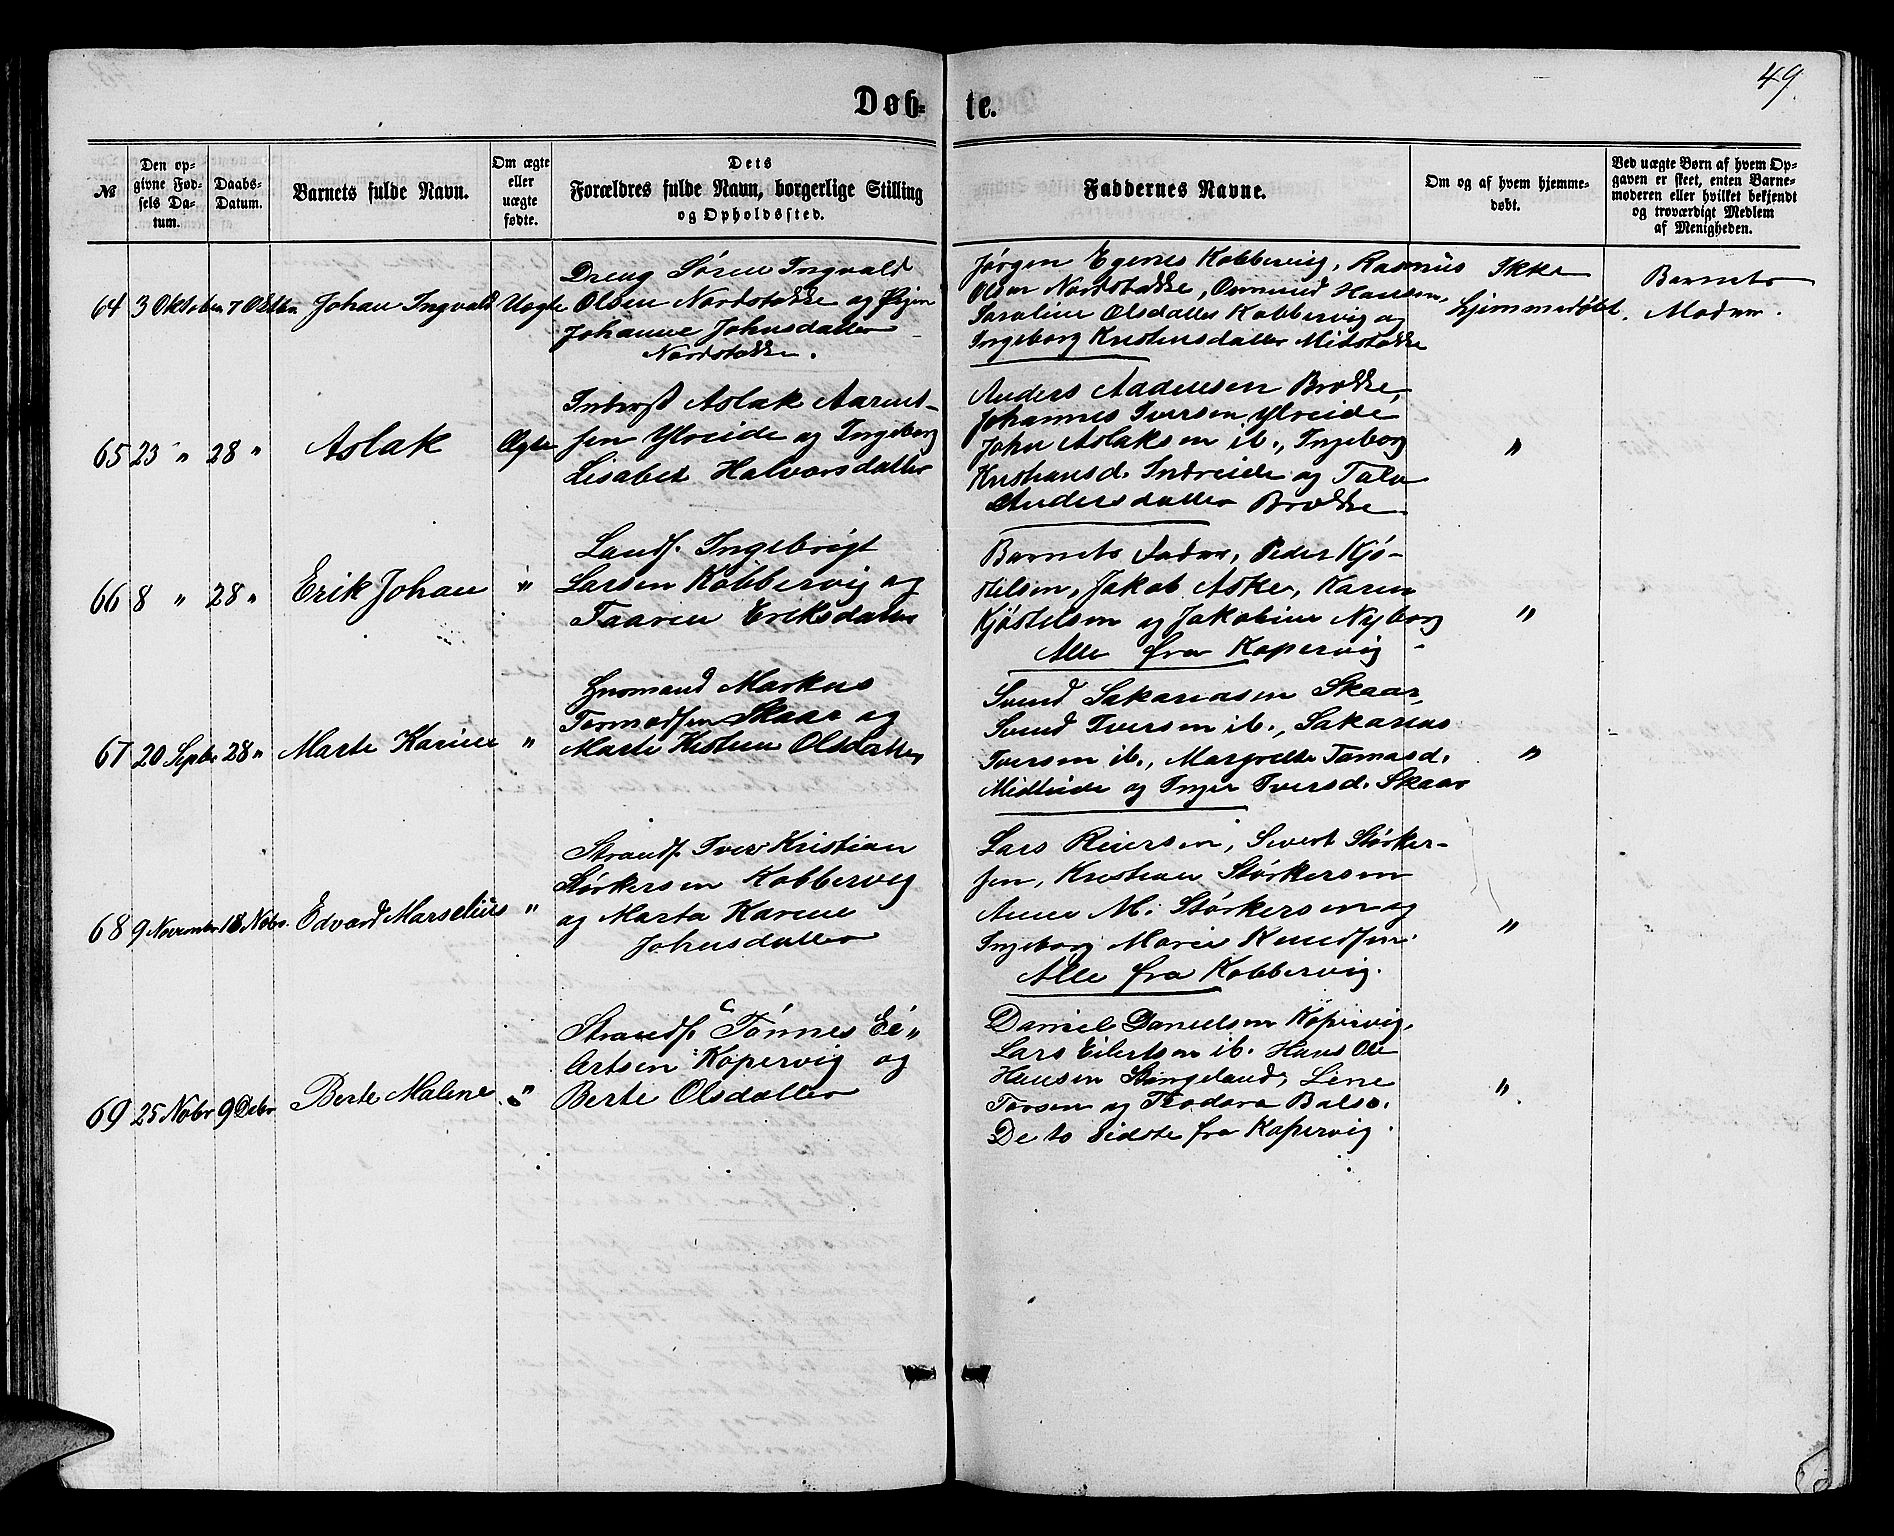 49.
Døb-te.
№
Den op-
givne Fød-
sels Da-
tum.
Daabs-
Datum.
Barnets fulde Navn.
Om ægte
eller
uægte
fødte.
Dets
Forældres fulde Navn, borgerlige Stilling
og Opholdssted.
Faddernes Navne.
Om og af hvem hjemme-
døbt.
Ved uægte Børn af hvem Op-
gaven er skeet, enten Barne-
moderen eller hvilket bekjendt
og troværdigt Medlem
af Menigheden.
64 3 Oktober 7 Oktbr Johan Ingvald Uægte
Dreng Søren Ingvald
Olsen Nordstokke og Pigen
Johanne Johnsdatter
Nordstokke.
Jørgen Egenes Kobbervig, Rasmus
Olsen Nordstokke, Osmund Hansen,
Karoline Olsdatter Kobbervig og
Ingeborg Kristensdatter Midstokke
Ikke
hjemmedøbt.
Barnets
Moder.
65 23 " 28 " Aslak Ægte
Inderst Aslak Aarent-
sen Ytreide og Ingeborg
Lisabet Halvorsdatter
Anders Aadnesen Brokke,
Johannes Iversen Ytreide
John Aslaksen ib., Ingeborg
Kristiansd. Indreide og Talo
Andersdatter Brokke.
"
66 8 " 28 " Erik Johan "
Landh. Ingebrigt
Larsen Kobbervig og
Taaren Eriksdatter
Barnets Fader, Peder Kjø-
stelsen, Jakob Aske, Karen
Kjøstelsen og Jakobine Nyborg
Alle fra Kopervig.
"
67 20 Septbr 28 " Marte Karine "
Husmand Markus
Tormodsen Skaar og
Marte Kistine Olsdatter
Svend Sakariasen Skaar,
Svend Iversen ib., Sakarias
Iversen ib., Margrethe Tomasd.
Midteide og Inger Iversd. Skaar
"
68 9 November 18 Nobr. Edvard Marselius "
Strands. Iver Kristian
Størkersen Kobbervig
og Marta Karine
Johnsdatter
Lars Reiersen, Sivert Størker-
sen, Kristian Størkersen
Anne M. Størkersen og
Ingeborg Marie Knudsen.
Alle fra Kobbervig.
"
69 25 Nobr 9 Debr Berte Malene "
Strands. Tønnes Ei-
lertsen Kopervig og
Berte Olsdatter
Daniel Danielsen Kopervig,
Lars Eilertsen ib. Hans Ole
Hansen Stangeland, Line
Torsen og Teodora Balso.
De to sidste fra Kopervig.
"